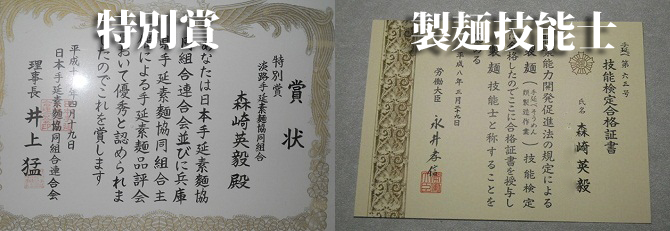 特別賞
賞状
特別賞
淡路手延素麺協同組合
森崎英毅殿
あなたは日本手延素麺協
同組合連合会並びに兵庫
県手延素麺協同組合主
による手延素麺品評会
おいて優秀と認められま
たのでこれを賞します
年四月十九日
日本手延素麺協同組合連合会
理事長 井上 猛
製麺技能士
第六三号
技能検定合格証書
氏名 森崎英毅
業能力開発促進法の規定による
製麺(手延べそうめん類製造作業)技能検定
格したのでここに合格証書を授与し
製麺技能士と称することを
る
平成八年三月二十九日
労働大臣 永井孝信